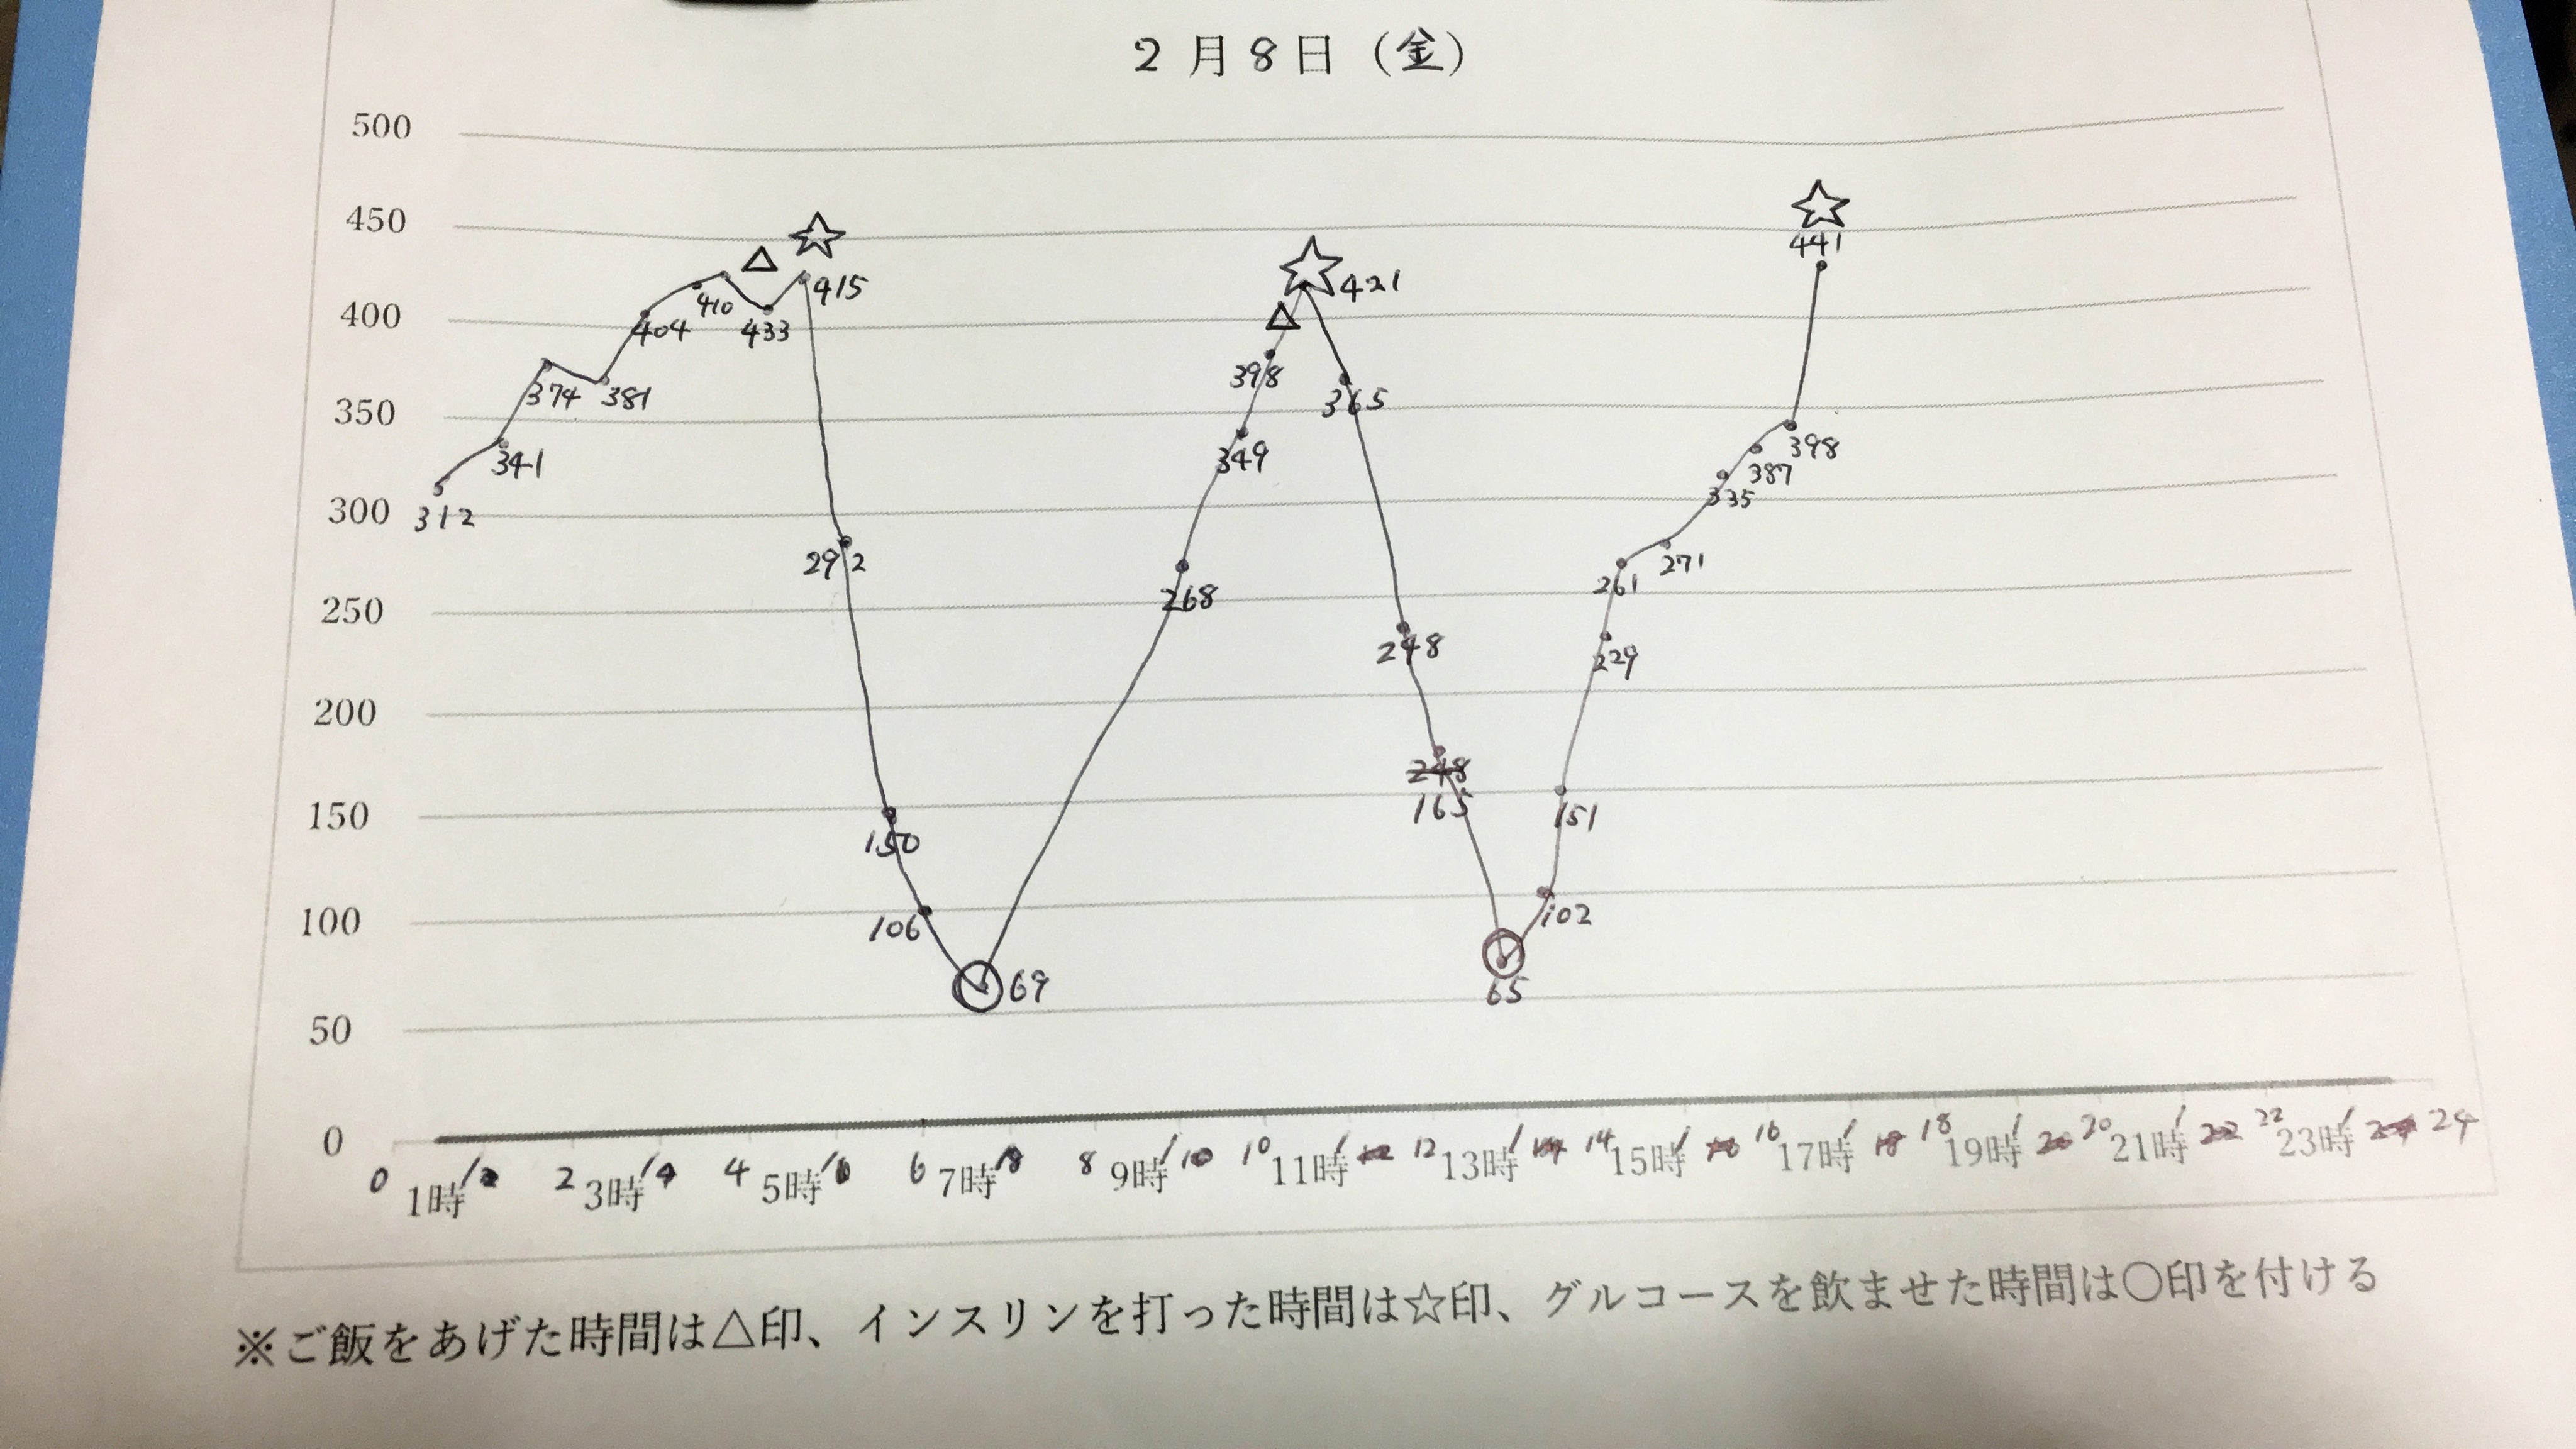 2月8日(金)
500
450
400
350
300
250
200
150
100
50
0
312
341
374
381
404
410
433
415
292
150
106
69
268
349
398
421
365
248
248
165
65
102
151
229
261
271
335
387
398
441
0 1時 2 3時 4 5時 6 7時 8 9時 10 10 11時 12 12 13時 14 14 15時 16 16 17時 18 18 19時 20 20 21時 22 22 23時 24 24
※ご飯をあげた時間は△印、インスリンを打った時間は☆印、グルコースを飲ませた時間は○印を付ける